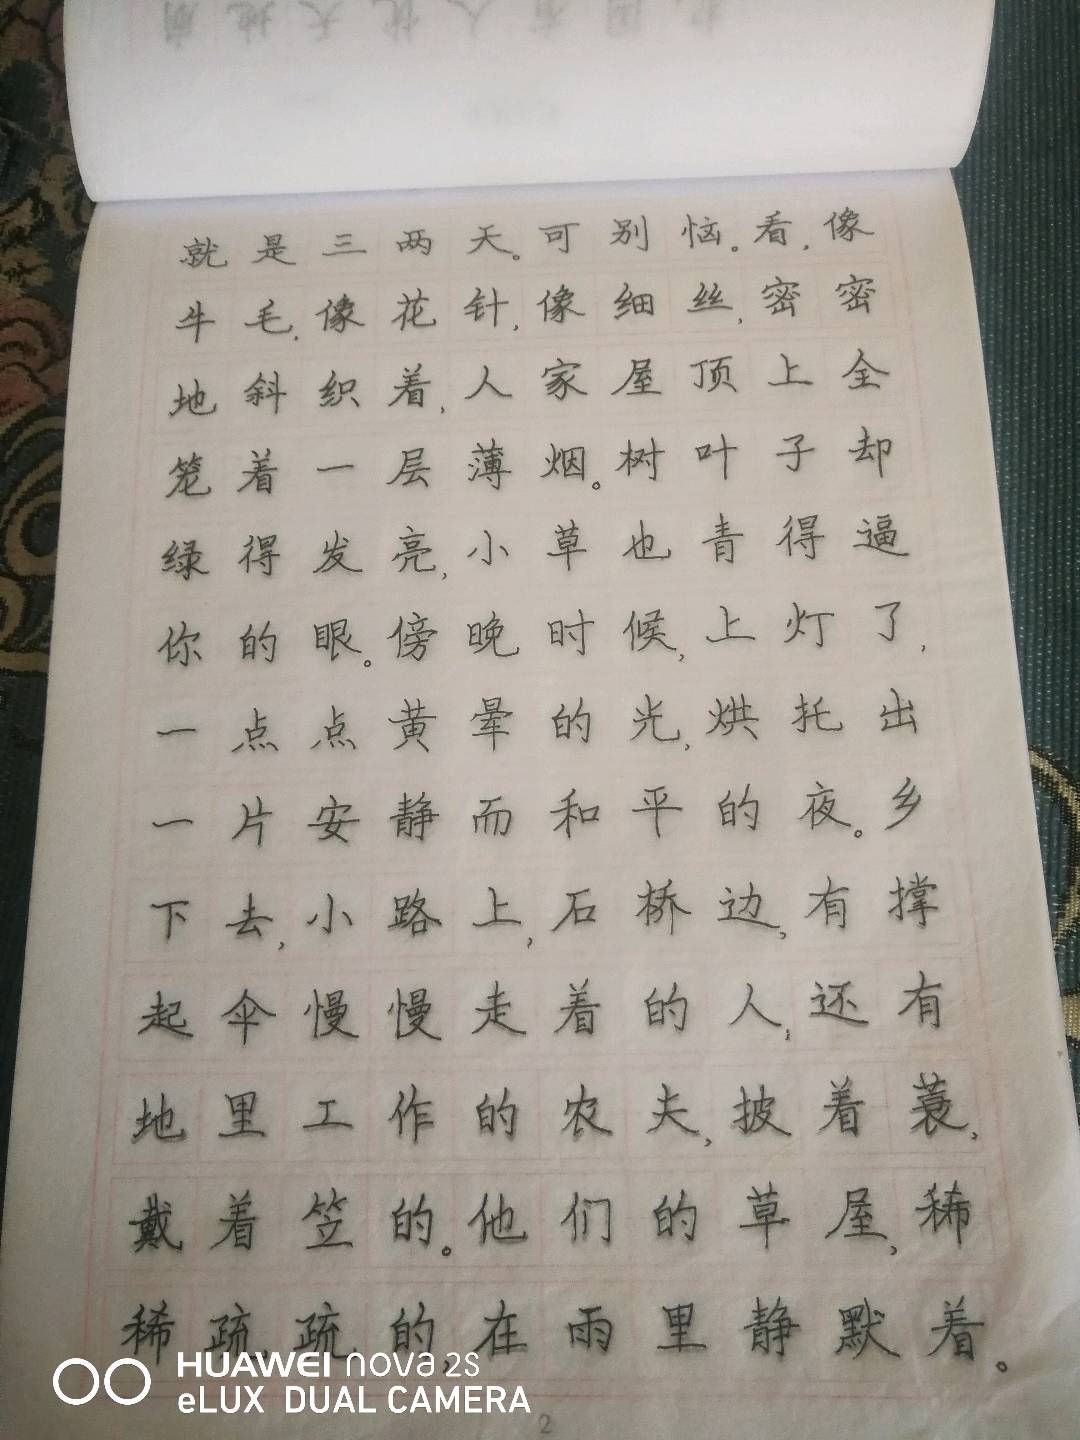 就是三两天。可别恼。看,像
牛毛,像花针,像细丝,密密
地斜织着,人家屋顶上全
笼着一层薄烟。树叶子却
绿得发亮,小草也青得逼
你的眼。傍晚时候,上灯了,
一点点黄晕的光,烘托出
一片安静而和平的夜。乡
下去,小路上,石桥边,有撑
起伞慢慢走着的人,还有
地里工作的农夫,披着蓑,
戴着笠的。他们的草屋,稀
稀疏疏的,在雨里静默着。
HUAWEI nova 2s
eLUX DUAL CAMERA
2